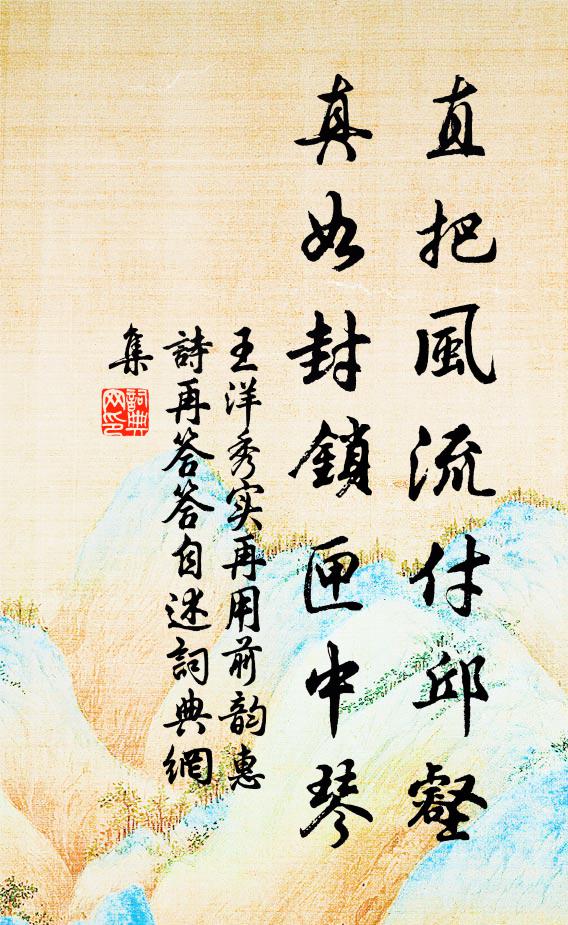 直把風流付邱壑
真如封鎖匣中琴
王洋秀实再用前韵惠
詩再答答自述詞典網
集
詞典
网印